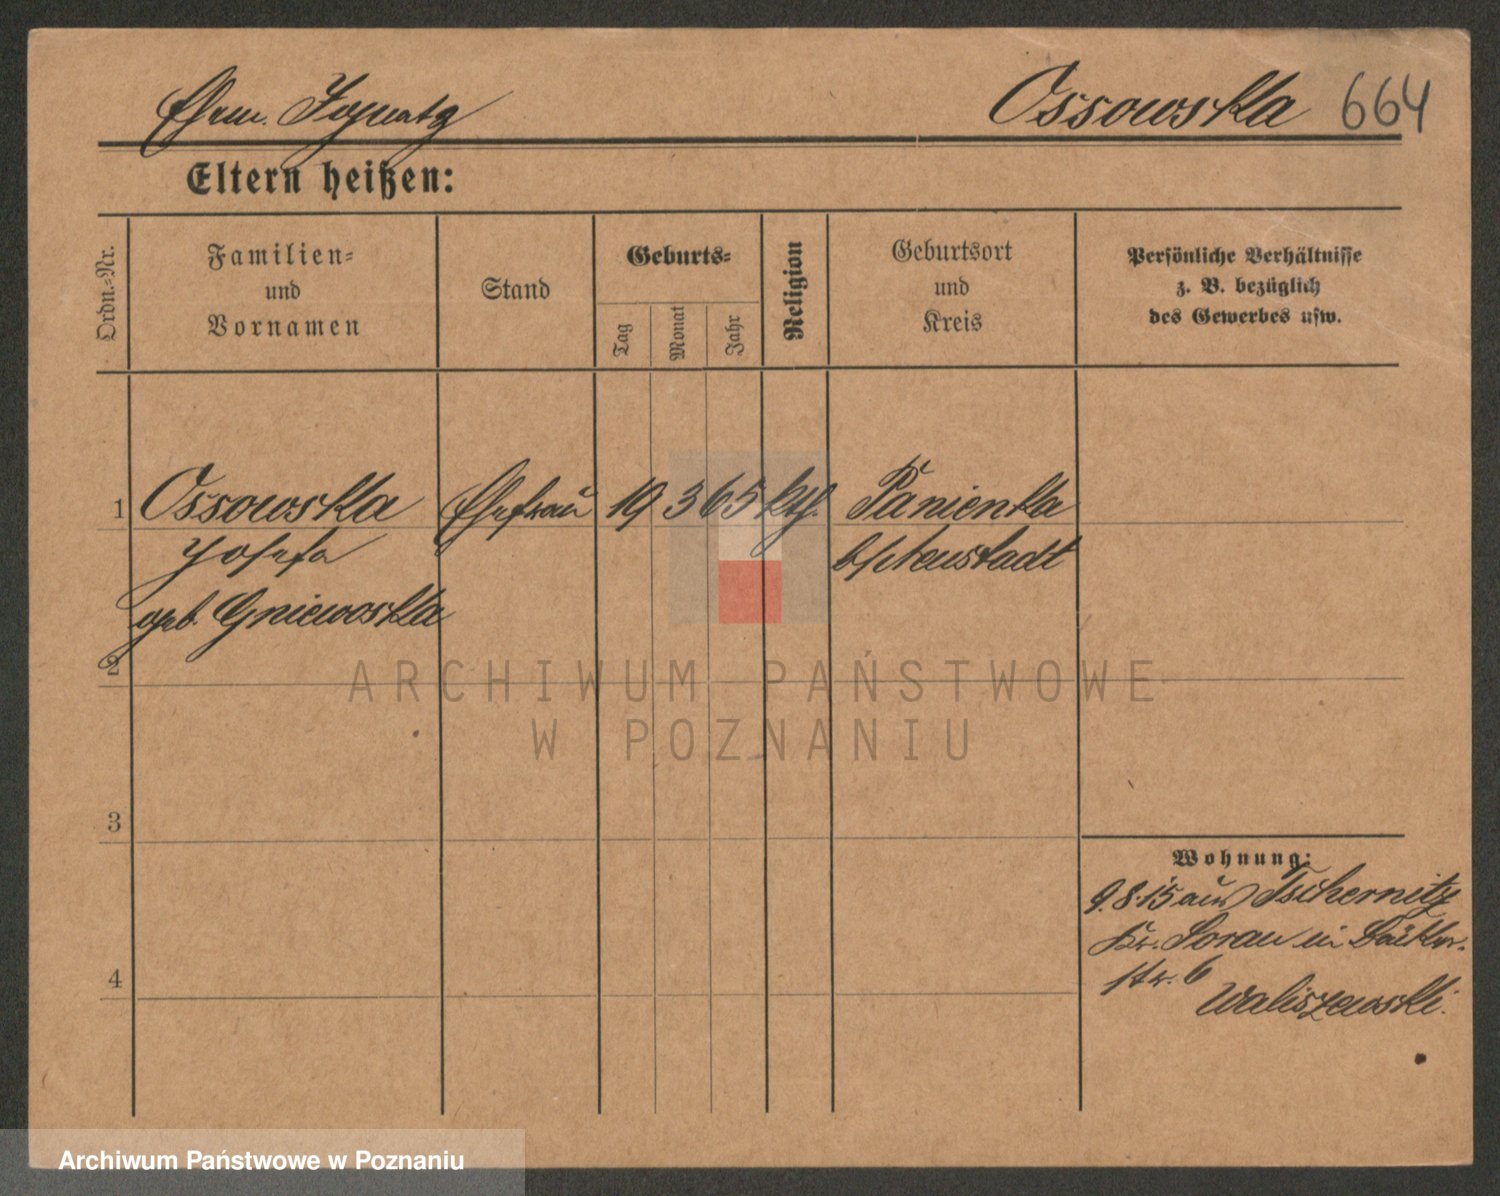 Ehem. Ignatz Ossowska 664
Eltern heißen:
Ordn.-Nr.
Familien-
und
Vornamen
Stand
Geburts-
Tag
Monat
Jahr
Religion
Geburtsort
und
Kreis
Persönliche Verhältnisse
z. B. bezüglich
des Gewerbes usw.
1 Ossowska Ehefrau 19 3 65 kth. Panienka
Josefa b/Neustadt
geb. Gniewoska
2
ARCHIWUM PAŃSTWOWE
W POZNANIU
3
4
Wohnung:
9.8.15 aus Tschernitz
Kr. Sorau in Bäcker-
str. 6
Waliszewski.
Archiwum Państwowe w Poznaniu